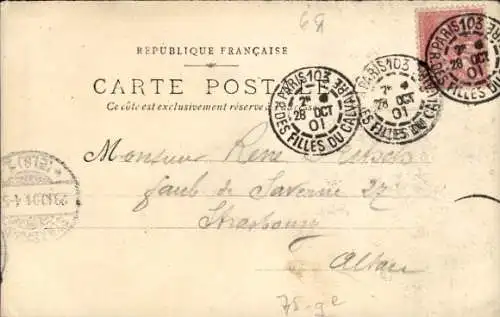 69
REPUBLIQUE FRANÇAISE
CARTE POSTALE
Ce côté est exclusivement réservé à
PARIS 103
2ᵉ
28 OCT
01
R. DES FILLES DU CALVAIRE
PARIS 103
28 OCT
01
R. DES FILLES DU CALVAIRE
PARIS 103
2ᵉ
28 OCT
01
R. DES FILLES DU CALVAIRE
Monsieur René
faub de Saverne 27
Strasbourg
Alsace
75-9e